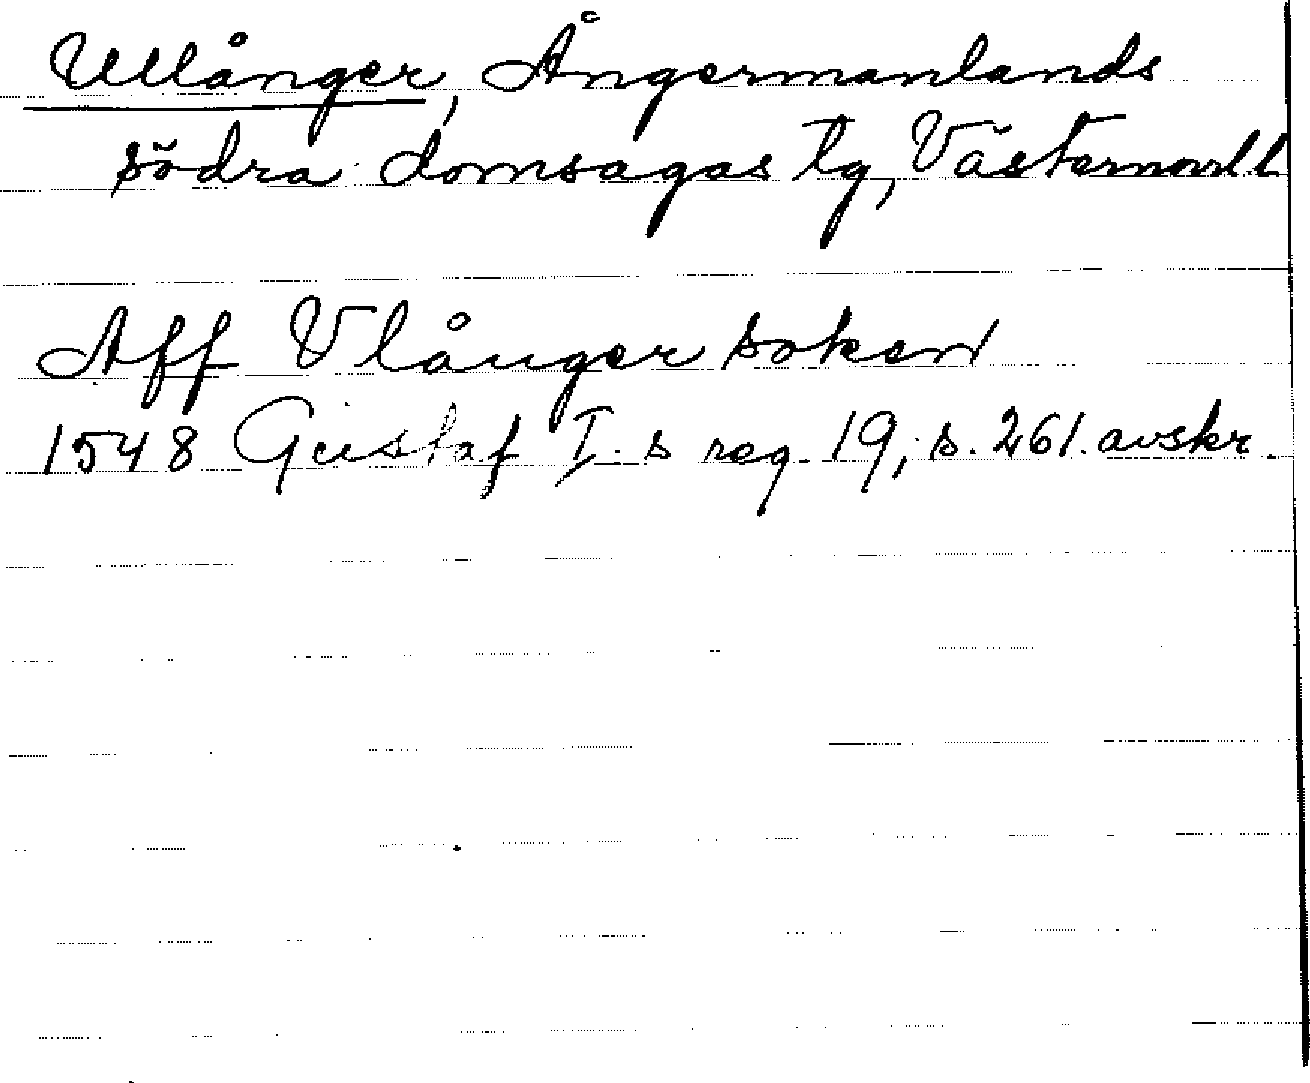 Ullånger, Ångermanlands
södra domsagas tg, Västernorrl l.
Aff Vlånger soken
1548 Gustaf I. s reg. 19, s. 261. avskr.